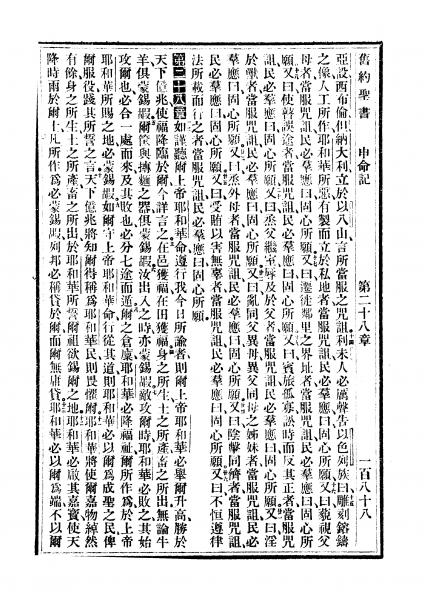 舊約聖書 申命記 第二十八章 一百八十八
亞設西布倫但納大利立於以八山言所當服之咒詛利未人必厲聲告以色列族曰雕刻鎔鑄
之像人工所作耶和華所惡有製而立於私地者當服咒詛民必羣應曰固心所願又曰藐視父
母者當服咒詛民必羣應曰固心所願又曰遷徙鄰里之界址者當服咒詛民必羣應曰固心所
願又曰使瞽誤途者當服咒詛民必羣應曰固心所願又曰賓旅孤寡訟時而反其正者當服咒
詛民必羣應曰固心所願又曰烝父繼室辱及於父者當服咒詛民必羣應曰固心所願又曰淫
於獸者當服咒詛民必羣應曰固心所願又曰亂同父異母異父同母之姊妹者當服咒詛民必
羣應曰固心所願又曰烝外母者當服咒詛民必羣應曰固心所願又曰陰擊同儕者當服咒詛
民必羣應曰固心所願又曰受賄以害無辜者當服咒詛民必羣應曰固心所願又曰不恒遵律
法所載而行之者當服咒詛民必羣應曰固心所願
第二十八章如謹聽爾上帝耶和華命遵行我今日所諭者則爾上帝耶和華必舉爾升高勝於
天下億兆使福降臨於爾今詳言之在邑獲福在田獲福身之所生土之所產畜之所出無論牛
羊俱蒙錫嘏爾筐與摶麵之器俱蒙錫嘏汝出入之時亦蒙錫嘏敵攻爾時耶和華必敗之其始
攻爾也必合一處而來及其敗也必分七途而遁爾之倉廩耶和華必降福祉爾所作爲於上帝
耶和華所賜之地必蒙錫嘏如爾守上帝耶和華命行從其道則耶和華必以爾爲成聖之民俾
爾服役踐其所誓之言天下億兆將知爾得稱爲耶和華民則畏懼爾耶和華將使爾嘉物綽然
有餘身之所生土之所產畜之所出於耶和華所誓爾祖欲錫爾之地耶和華必啟其嘉賓使天
降時雨於爾土凡所作爲必蒙錫嘏列邦必稱貸於爾而爾無庸貸耶和華必以爾爲端不以爾